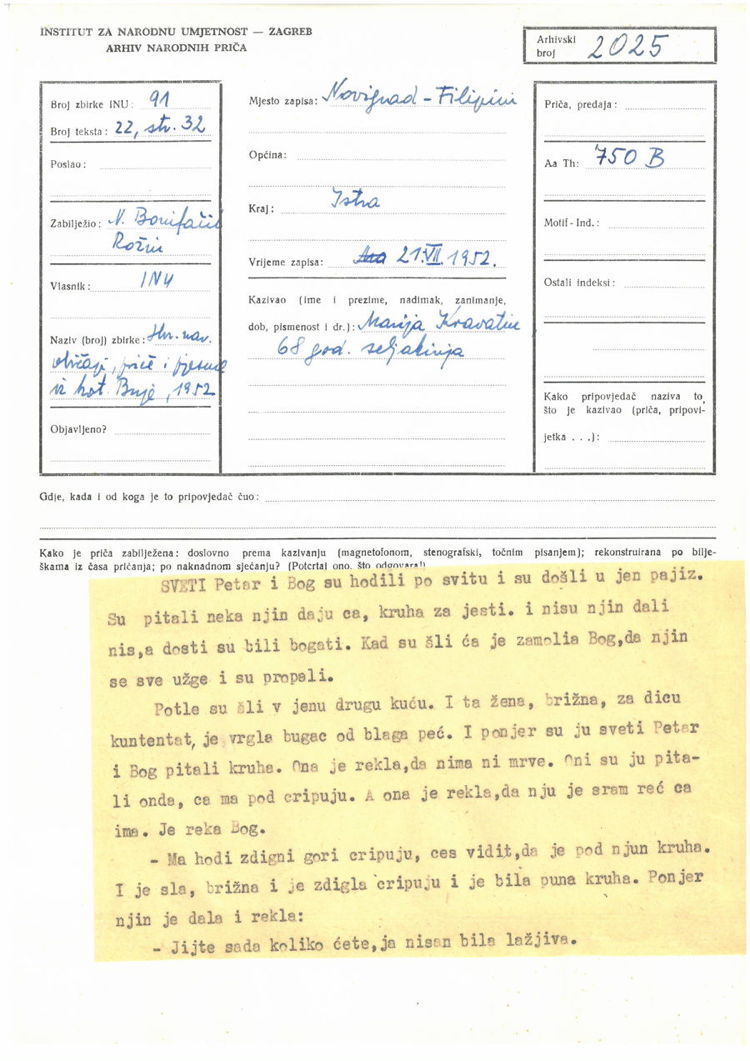 INSTITUT ZA NARODNU UMJETNOST — ZAGREB
ARHIV NARODNIH PRIČA
Arhivski
broj 2025
Broj zbirke INU: 91
Broj teksta: 22, str. 32
Poslao:
Zabilježio: N. Bonifačić
Rožin
Vlasnik: INU
Naziv (broj) zbirke: Hr. nar.
običaji, priče i pjesme
iz kot. Buje, 1952
Objavljeno?
Mjesto zapisa: Novigrad - Filipini
Općina:
Kraj: Istra
Vrijeme zapisa: 21.VII.1952.
Kazivao (ime i prezime, nadimak, zanimanje,
dob, pismenost i dr.): Marija Kravatin
68 god. seljakinja
Priča, predaja:
Aa Th: 750 B
Motif-Ind.:
Ostali indeksi:
Kako pripovjedač naziva to,
što je kazivao (priča, pripovi-
jetka . . .):
Gdje, kada i od koga je to pripovjedač čuo:
Kako je priča zabilježena: doslovno prema kazivanju (magnetofonom, stenografski, točnim pisanjem); rekonstruirana po bilje-
škama iz časa pričanja; po naknadnom sjećanju? (Potcrtaj ono, što odgovara!)
SVETI Petar i Bog su hodili po svitu i su došli u jen pajiz.
Su pitali neka njin daju ca, kruha za jesti. i nisu njin dali
nis,a dosti su bili bogati. Kad su šli ća je zamolia Bog,da njin
se sve užge i su propali.
Potle su šli v jenu drugu kuću. I ta žena, brižna, za dicu
kuntentat, je vrgla bugac od blaga peć. I ponjer su ju sveti Petar
i Bog pitali kruha. Ona je rekla,da nima ni mrve. Oni su ju pita-
li onda, ca ma pod cripuju. A ona je rekla,da nju je sram reć ca
ima. Je reka Bog.
- Ma hodi zdigni gori cripuju, ces vidit,da je pod njun kruha.
I je sla, brižna i je zdigla cripuju i je bila puna kruha. Ponjer
njin je dala i rekla:
- Jijte sada koliko ćete,ja nisan bila lažjiva.